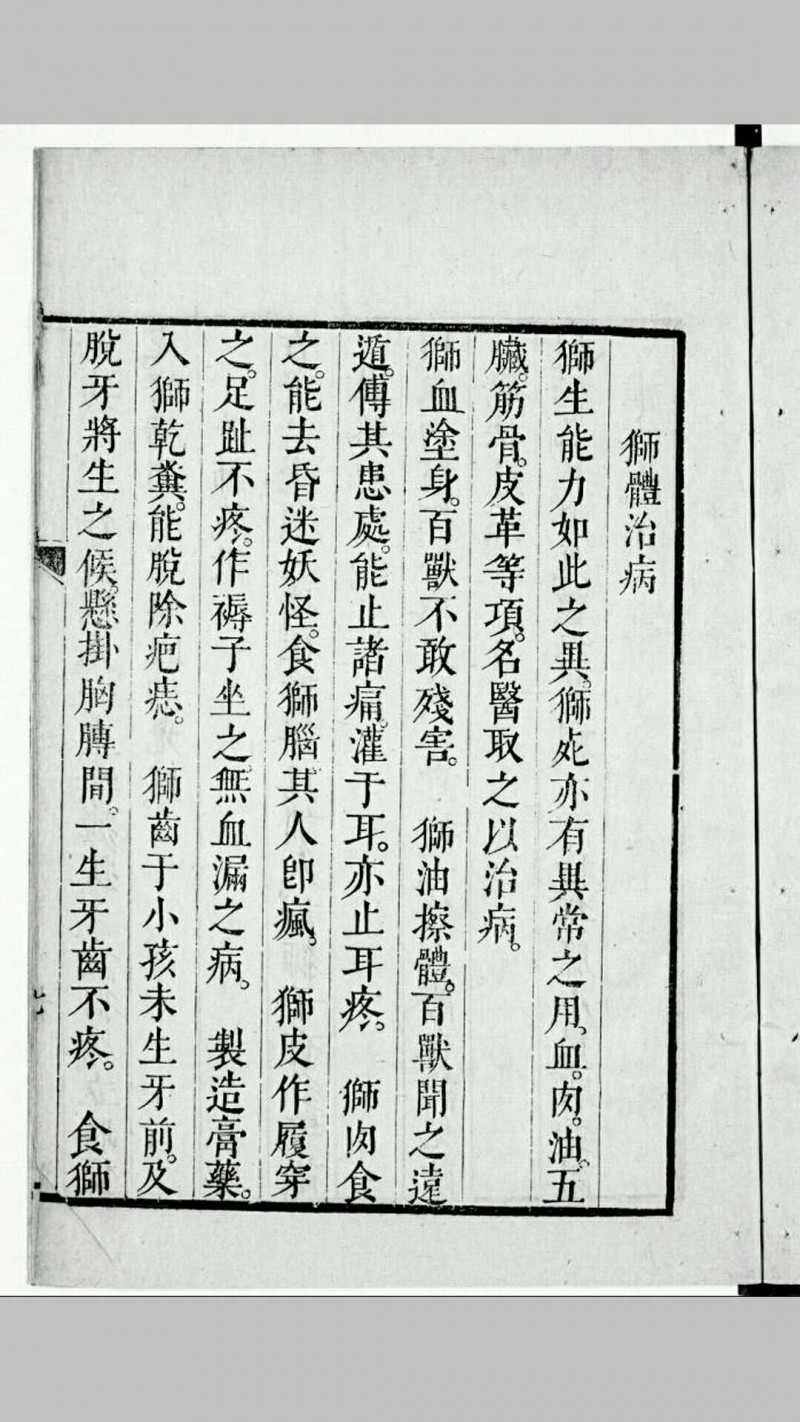 獅體治病
獅生能力如此之異。獅死亦有異常之用。血。肉。油。五
臟。筋骨。皮革等項。名醫取之以治病。
獅血塗身。百獸不敢殘害。　獅油擦體。百獸聞之遠
遁。傅其患處。能止諸痛。灌于耳。亦止耳疼。　獅肉食
之。能去昏迷妖怪。食獅腦。其人卽瘋。　獅皮作履穿
之。足趾不疼。作褥子坐之。無血漏之病。　製造膏藥。
入獅乾糞。能脫除疤痣。　獅齒于小孩未生牙前。及
脫牙將生之候。懸掛胸膞間。一生牙齒不疼。　食獅